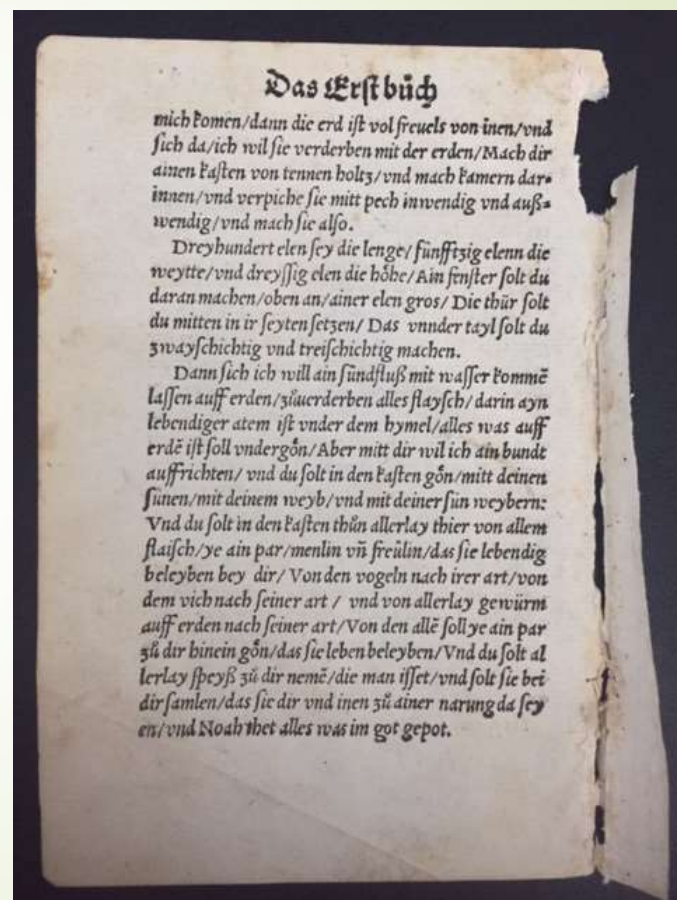 Das Erst bůch
mich komen/dann die erd ist vol freuels von inen/vnd
sich da/ich wil sie verderben mit der erden/Mach dir
ainen kasten von tennen holtz/vnd mach kamern dar⸗
innen/vnd verpiche sie mitt pech inwendig vnd auß⸗
wendig/vnd mach sie also.
Dreyhundert elen sey die lenge/fünfftzig elenn die
weytte/vnd dreyssig elen die höhe/Ain fenster solt du
daran machen/oben an/ainer elen gros/Die thür solt
du mitten in ir seyten setzen/Das vnnder tayl solt du
zwayschichtig vnd treischichtig machen.
Dann sich ich will ain sündfluß mit wasser kommē
lassen auff erden/zůuerderben alles flaysch/darin ayn
lebendiger atem ist vnder dem hymel/alles was auff
erdē ist soll vndergôn/Aber mitt dir wil ich ain bundt
auffrichten/vnd du solt in den kasten gôn/mitt deinen
sünen/mit deinem weyb/vnd mit deiner sün weybern:
Vnd du solt in den kasten thůn allerlay thier von allem
flaisch/ye ain par/menlin vn̄ freülin/das sie lebendig
beleyben bey dir/Von den vogeln nach irer art/von
dem vich nach seiner art/vnd von allerlay gewürm
auff erden nach seiner art/Von den allē soll ye ain par
zů dir hinein gôn/das sie leben beleyben/Vnd du solt al
lerlay speyß zů dir nemē/die man isset/vnd solt sie bei
dir samlen/das sie dir vnd inen zů ainer narung da sey
en/vnd Noah thet alles was im got gepot.